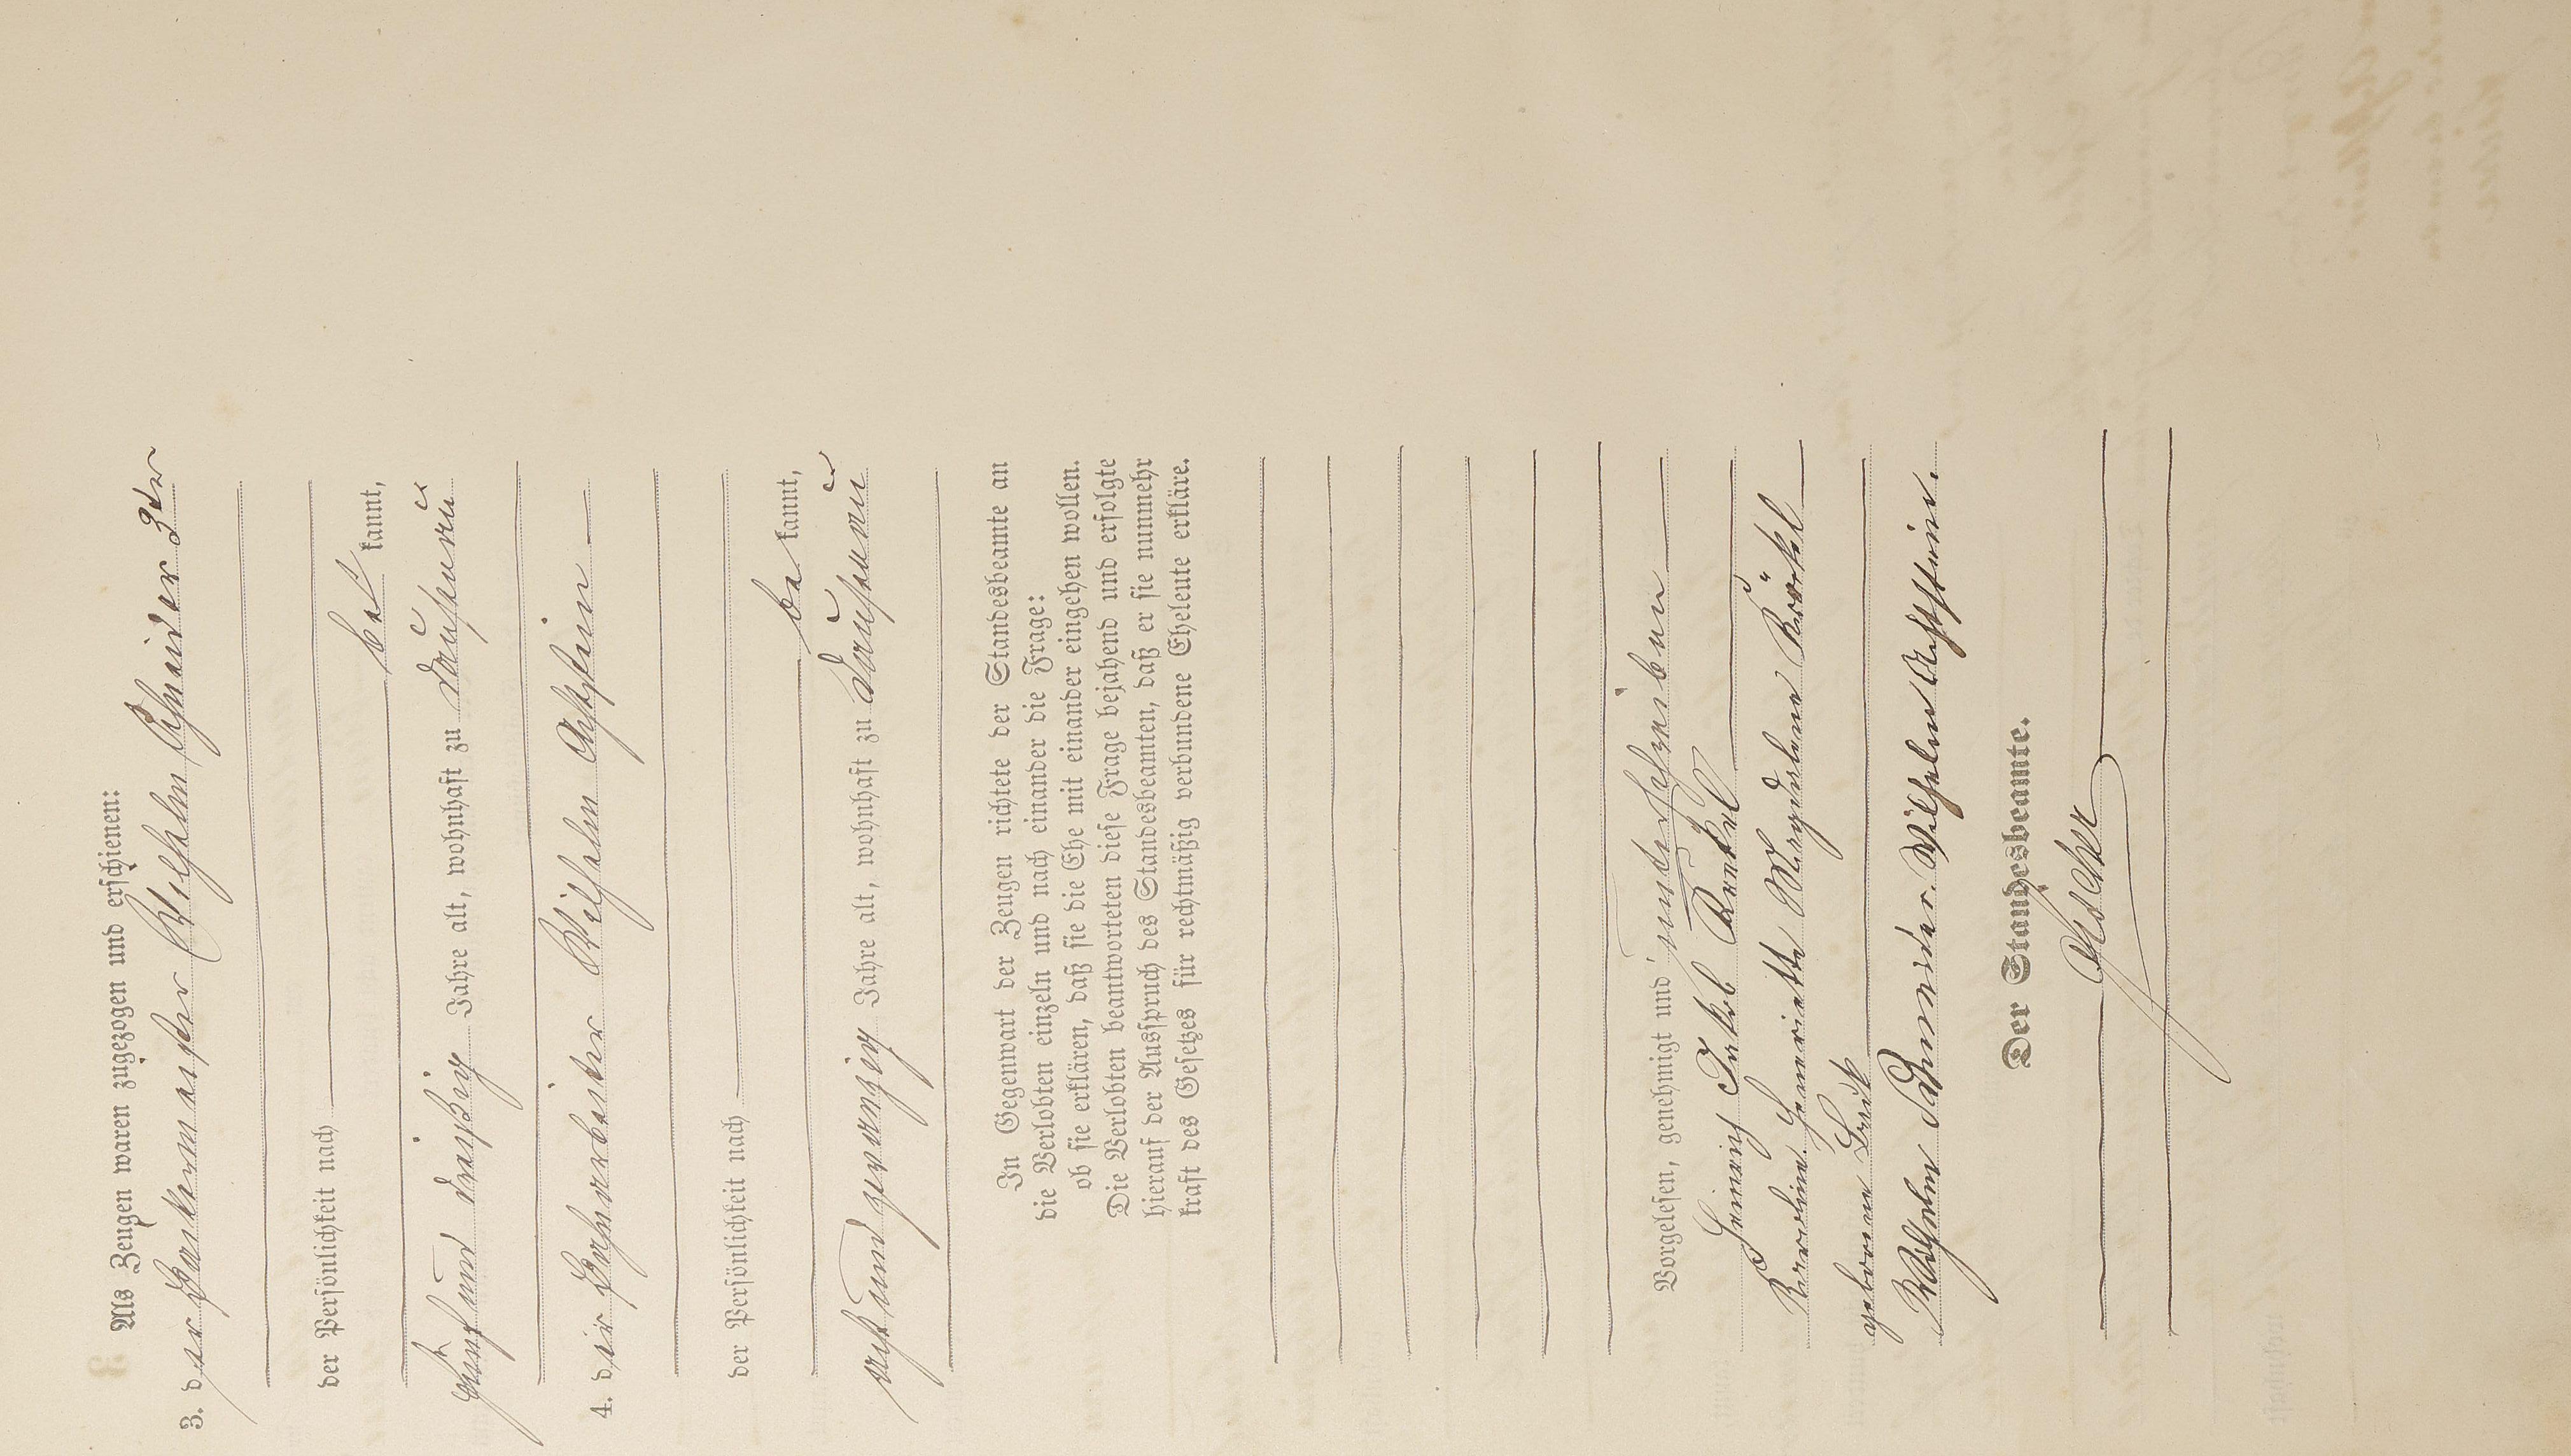 Als Zeugen waren zugezogen und erschienen:
3. der Postkermeister Wilhelm Schneider 3ter
der Persönlichkeit nach
bekannt,
fünf und dreißig Jahre alt, wohnhaft zu Dausenau
4. der Bahnarbeiter Wilhelm Achstein
der Persönlichkeit nach
be kannt,
acht und zwanzig Jahre alt, wohnhaft zu Dausenau
In Gegenwart der Zeugen richtete der Standesbeamte an
die Verlobten einzeln und nach einander die Frage:
ob sie erklären, daß sie die Ehe mit einander eingehen wollen.
Die Verlobten beantworteten diese Frage bejahend und erfolgte
hierauf der Ausspruch des Standesbeamten, daß er sie nunmehr
kraft des Gesetzes für rechtmäßig verbundene Eheleute erkläre.
Vorgelesen, genehmigt und unterschrieben
Heinrich Jakob
Karoline Henriette Magdalene
geborene
Wilhelm Schneider. Wilhelm Achstein.
Der Standesbeamte.